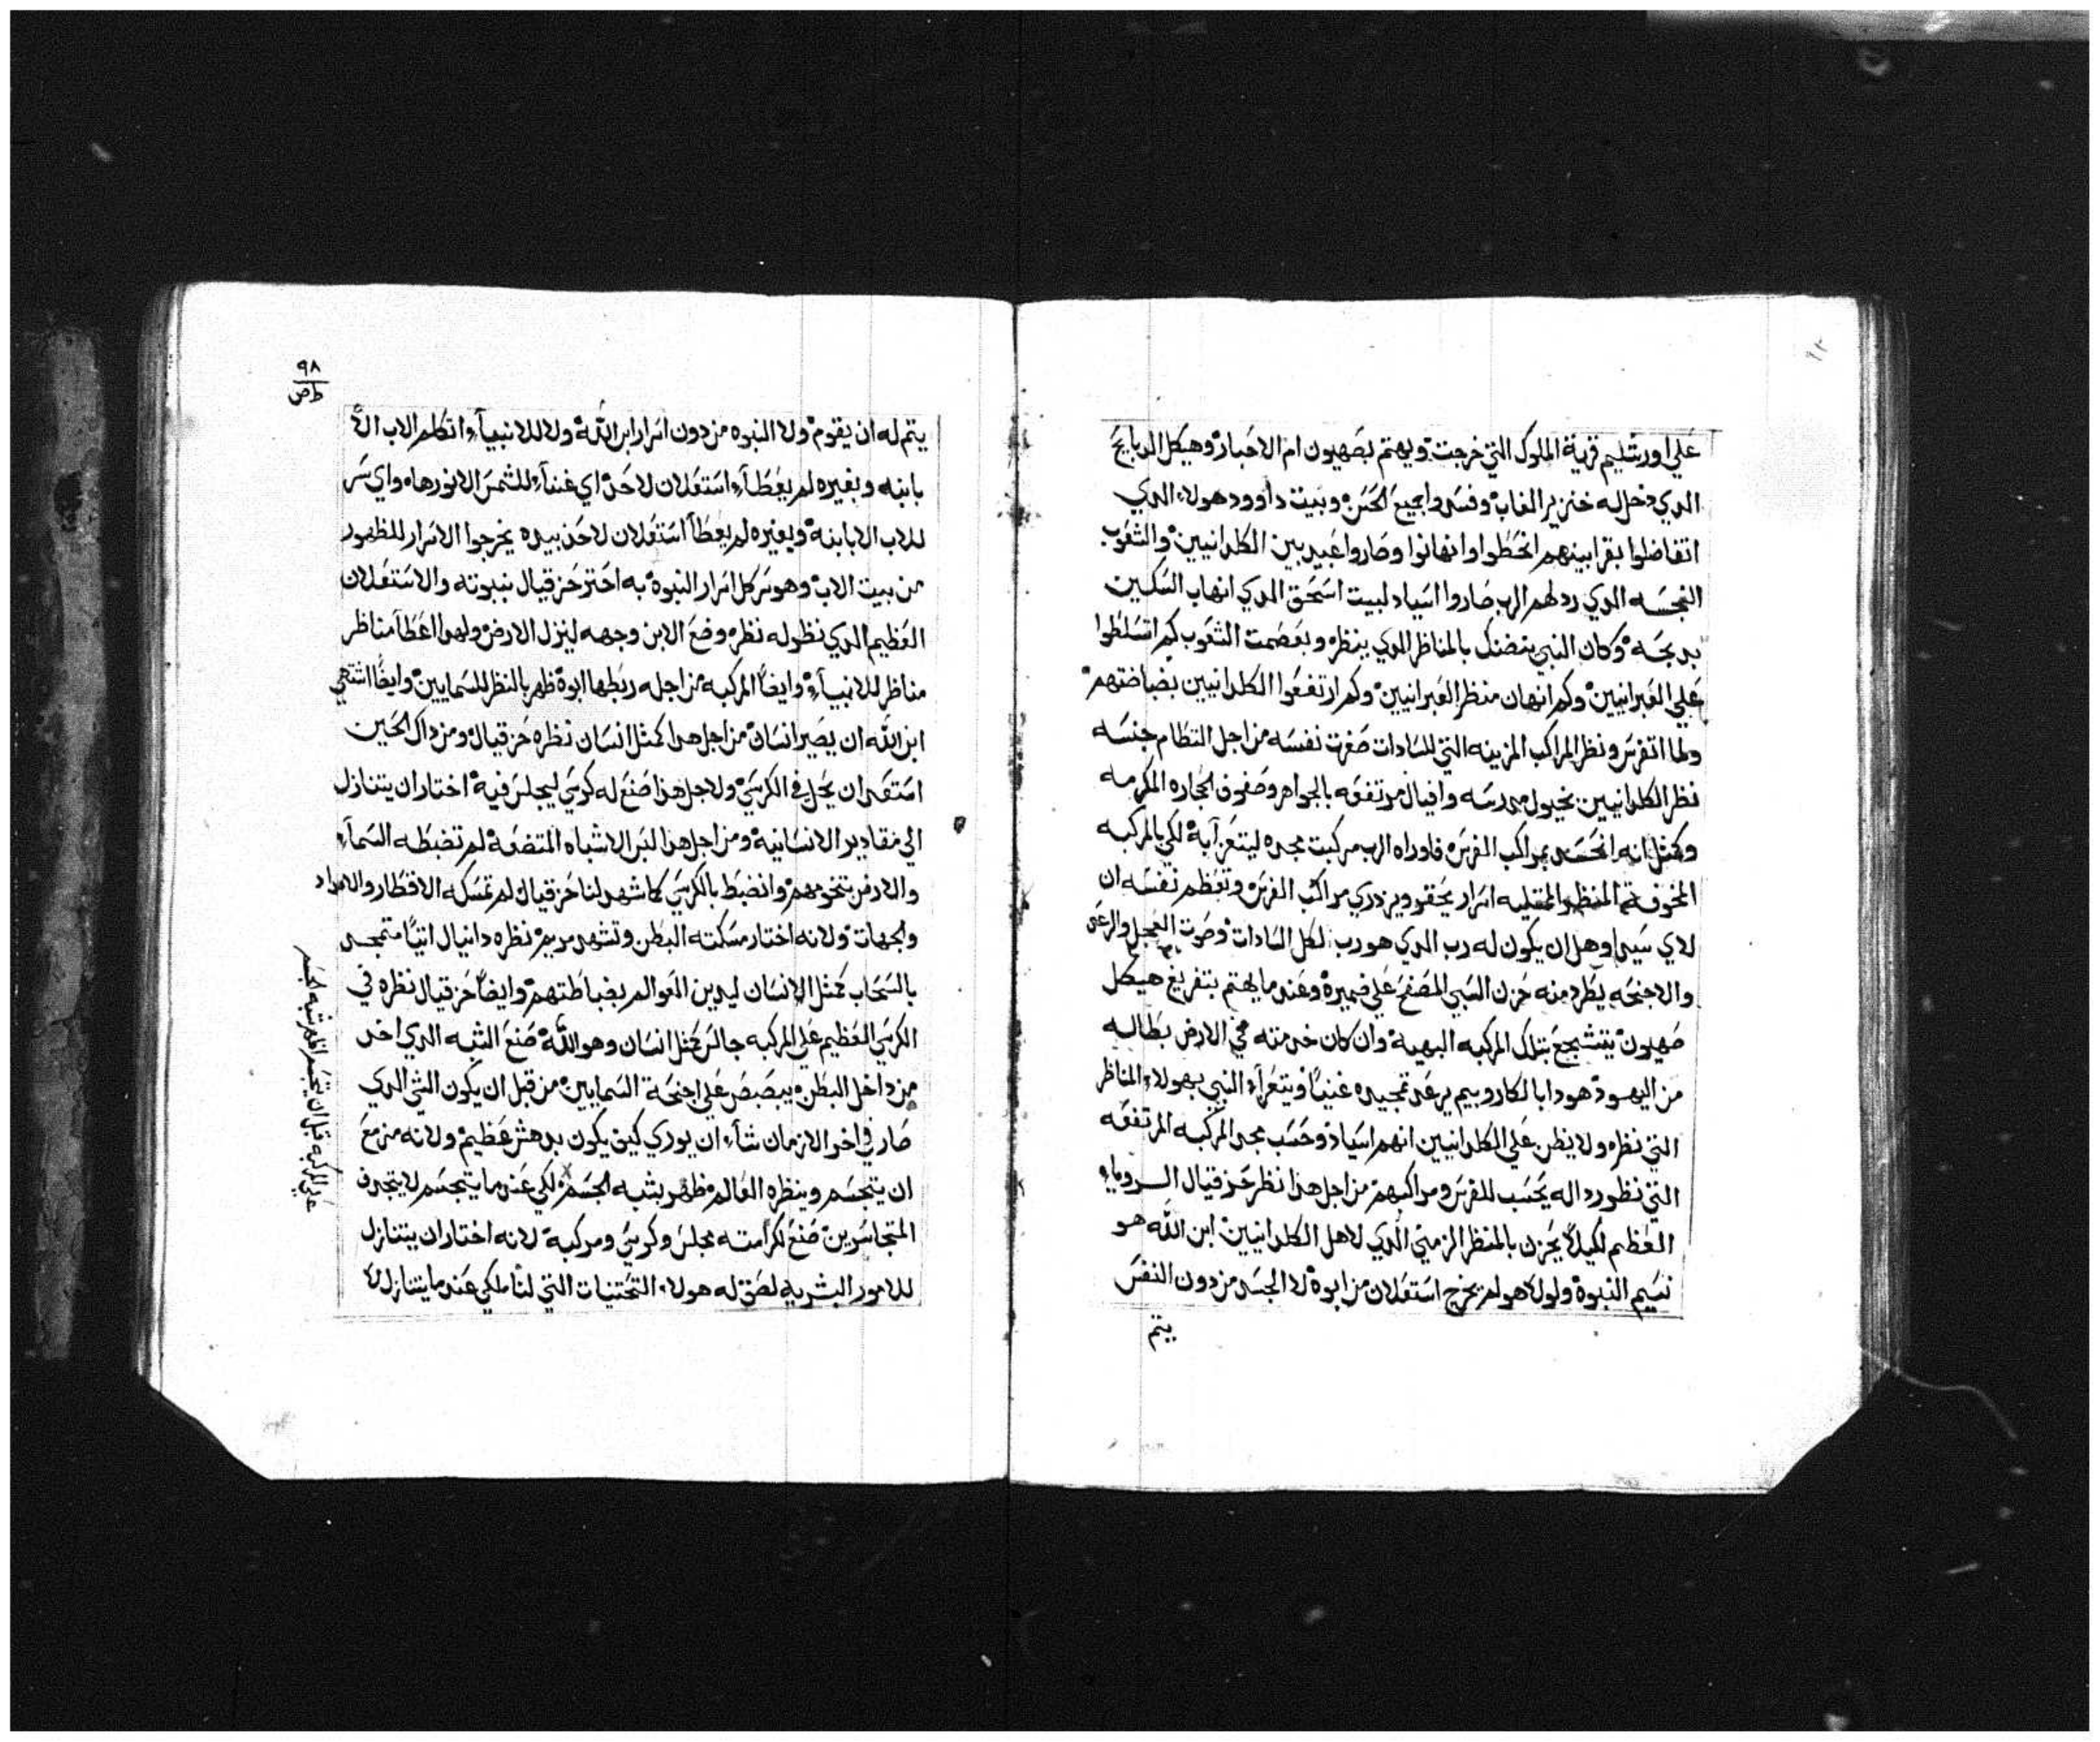 علي اورشليم قرية الملوك التي خرجت ويهتم بصهيون ام الاحبار وهيكل الدبايح
الدي دخل له خنزير الغاب وفسدوا جميع الحسن وبيت داوود هولاء الدي
اتفاضلوا بقرابينهم انحطوا وانهانوا وصاروا عبيد بين الكلدانيين والشعوب
النجسه الدي ردلهم الرب صاروا اسياد لبيت اسحق الدي انهاب السكين
بدبحه وكان النبي يتضنك بالمناظر الدي ينظر وبعضمت الشعوب كم اتسلطوا
علي العبرانيين وكم انهان منظر العبرانيين وكم ارتفعوا الكلدانيين بضباضتهم
ولما اتفرس ونظر المراكب المزينه التي للسادات صغرت نفسه من اجل انتظام جنسه
نظر الكلدانيين بخيول مدرسه وافيال مرتفعه بالجواهر وصفوف الحجاره المكرمه
وكمثل انه انحسد بمراكب الفرس فاوراه الرب مركبت مجده ليتعز آبة لكي بالمركبه
المخوفة المنظر المتليه اسرار يحقر ويزدري مراكب الفرس وتعظم نفسه ان
لاي سيد اوهل ان يكون له رب الدي هو رب لكل السادات وصوت العجل والرعد
والاجنحه يطرد منه حزن السبي المصفح علي ضميره وعندما يهتم بتفريغ هيكل
صهيون يتشجع بتلك المركبه البهية وان كان خدمته في الارض بطاله
من اليهود هودا بالكاروبيم يرعد تمجيده غنيًا ويتعزآء النبي بهولاء المناظر
التي نظره ولا يظن علي الكلدانيين انهم اسياد وحسب مجد المركبه المرتفعه
التي نظر رداله يحسب للفرس ومراكبهم من اجل هدا نظر حزقيال الروياء
العظيم لكيلا يحزن بالمنظر الزمني الدي لاهل الكلدانيين ابن الله هو
نسيم النبوة ولولا هو لم يخرج استعلان من ابوة لا الجسد من دون النفس
يتم
٩٨
يتم له ان يقوم ولا النبوه من دون اسرار ابن الله ولا للانبيآء اتكلم الاب الا
بابنه وبغيره لم يعطآء استعلان لاحد اي غنآء للشمس الا نورها واي سر
للاب الا بابنه وبغيره لم يعطآ استعلان لاحد بيده يخرجوا الاسرار للظهور
من بيت الاب وهو سر كل اسرار النبوة به احتز حزقيال بنبوته والاستعلان
العظيم الدي نظر له نظره وضع الابن وجهه لينزل الارض ولهدا اعطآ مناظر
مناظر للانبيآء وايضًا المركبه من اجله ربطها ابوة ظهر بالنظر للسمايين وايضًا اشتهي
ابن الله ان يصير انسان من اجل هدا كمثل انسان نظره حزقيال ومن داك الحين
استعد ان يحل في الكرسي ولاجل هدا صنع له كرسي ليجلس فيه اختار ان يتنازل
الي مقادير الانسانيه ومن اجل هدا لبس الاشباه المتضعة لم تضبطه السمآء
والارض بتخومهم وانضبط بالكرسي كما شهد لنا حزقيال لم تمسكه الاقطار والامداد
والجهات ولانه اختار مسكنه البطن وتشهد مريم نظره دانيال اتيًا متمجد
بالسحاب كمثل الانسان ليدين العوالم بضباطتهم وايضًا حزقيال نظره في
الكرسي العظيم علي المركبه جالس كمثل انسان وهو الله صنع الشبه الدي اخد
من داخل البطن يبصبص علي اجنحة السمايين من قبل ان يكون الشي الدي
صار في اخر الازمان شآء ان يوري كيف يكون بدهش عظيم ولانه مزمع
ان يتجسم وينظره العالم ظهر بشبه الجسم لكي عندما يتجسم لا يتجدف
المتجاسرين صنع لكرامته مجلس وكرسي ومركبة لانه اختار ان يتنازل
للامور البشريه لصق له هولاء التحتنيات التي لنا لكي عندما يتنازل لا
علي المركبه قبل ان يتجسم اظهر شبه الجسم